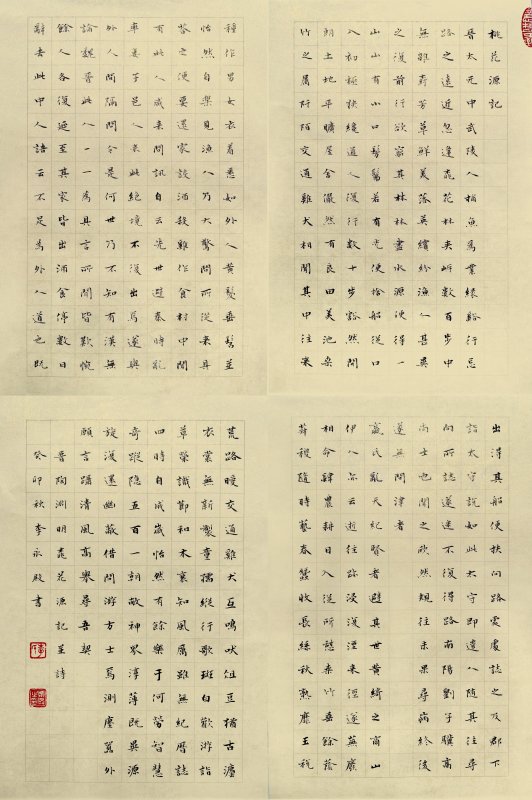 桃花源記
晉太元中武陵人捕魚為業緣谿行忘
路之遠近忽逢桃花林夾岸數百步中
無雜樹芳草鮮美落英繽紛漁人甚異
之復前行欲窮其林林盡水源便得一
山山有小口髣髴若有光便捨船從口
入初極狹纔通人復行數十步豁然開
朗土地平曠屋舍儼然有良田美池桑
竹之屬阡陌交通雞犬相聞其中往來
種作男女衣着悉如外人黄髮垂髫並
怡然自樂見漁人乃大驚問所從來具
答之便要還家設酒殺雞作食村中聞
有此人咸來問訊自云先世避秦時亂
率妻子邑人來此絕境不復出焉遂與
外人間隔問今是何世乃不知有漢無
論魏晉此人一一為具言所聞皆歎惋
餘人各復延至其家皆出酒食停數日
辭去此中人語云不足為外人道也既
出得其船便扶向路處處誌之及郡下
詣太守說如此太守即遣人隨其往尋
向所誌遂迷不復得路南陽劉子驥高
尚士也聞之欣然規往未果尋病終後
遂無問津者
嬴氏亂天紀賢者避其世黄綺之商山
伊人亦云逝往跡浸復湮來逕遂蕪廢
相命肆農耕日入從所憩桑竹垂餘蔭
菽稷隨時藝春蠶收長絲秋熟靡王稅
荒路曖交通雞犬互鳴吠俎豆猶古灋
衣裳無新製童孺縱行歌班白歡游詣
草榮識節和木衰知風厲雖無紀曆誌
四時自成歲怡然有餘樂于何勞智慧
奇蹤隱五百一朝敞神界淳薄既異源
旋復還幽蔽借問游方士焉測塵囂外
願言躡清風高舉尋吾契
晉陶淵明桃花源記並詩
癸卯秋李永殷書